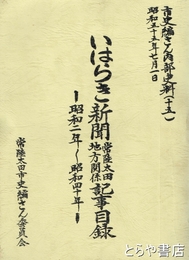 市史編さん内部史料(十五)
昭和五十五年七月一日
いはらき新聞 常陸太田地方関係 記事目録
ー昭和二年〜昭和四十年ー
常陸太田市史編さん委員会
とらや書店